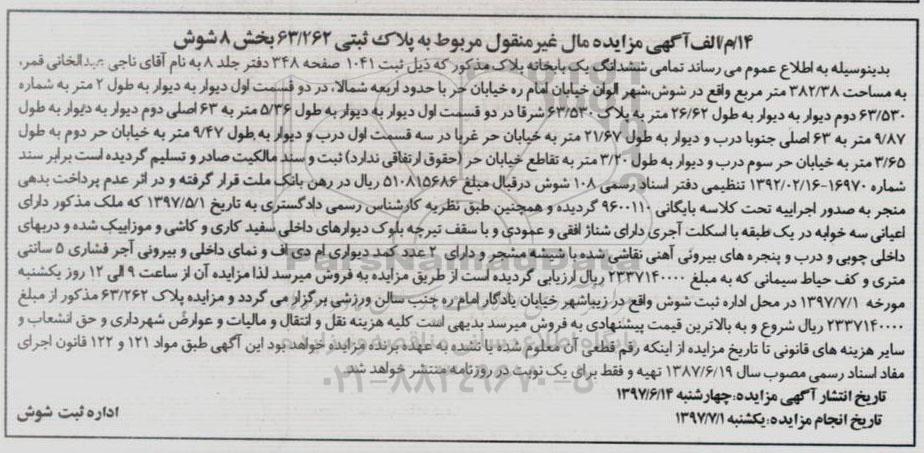 ۱۴/م/الف آگهی مزایده مال غیرمنقول مربوط به پلاک ثبتی ۶۳/۲۶۲ بخش ۸ شوش
بدینوسیله به اطلاع عموم می رساند تمامی ششدانگ یک بابخانه پلاک مذکور که ذیل ثبت ۱۰۴۱ صفحه ۳۴۸ دفتر جلد ۸ به نام آقای ناجی عبدالخانی قمر،
به مساحت ۳۸۲/۳۸ متر مربع واقع در شوش،شهر الوان خیابان امام ره خیابان حر با حدود اربعه شمالا، در دو قسمت اول دیوار به دیوار به طول ۲ متر به شماره
۶۳/۵۳۰ دوم دیوار به دیوار به طول ۲۶/۶۲ متر به پلاک ۶۳/۵۲۰ شرقا در دو قسمت اول دیوار به دیوار به طول ۵/۳۶ متر به ۶۳ اصلی دوم دیوار به دیوار به طول
۹/۸۷ متر به ۶۳ اصلی جنوبا درب و دیوار به طول ۲۱/۶۷ متر به خیابان حر غربا در سه قسمت اول درب و دیوار به طول ۹/۴۷ متر به خیابان حر دوم به طول
۳/۶۵ متر به خیابان حر سوم درب و دیوار به طول ۳/۲۰ متر به تقاطع خیابان حر (حقوق ارتفاقی ندارد) ثبت و سند مالکیت صادر و تسلیم گردیده است برابر سند
شماره ۱۶۹۷۰-۱۳۹۲/۰۲/۱۶ تنظیمی دفتر اسناد رسمی ۱۰۸ شوش درقبال مبلغ ۵۱۰۸۱۵۶۸۶ ریال در رهن بانک ملت قرار گرفته و در اثر عدم پرداخت بدهی
منجر به صدور اجراییه تحت کلاسه بایگانی ۹۶۰۰۱۱۰ گردیده و همچنین طبق نظریه کارشناس رسمی دادگستری به تاریخ ۱۳۹۷/۵/۱ که ملک مذکور دارای
اعیانی سه خوابه در یک طبقه با اسکلت آجری دارای شناژ افقی و عمودی و با سقف تیرچه بلوک دیوارهای داخلی سفید کاری و کاشی و موزاییک شده و دربهای
داخلی چوبی و درب و پنجره های بیرونی آهنی نقاشی شده با شیشه مشجر و دارای ۲ عدد کمد دیواری ام دی اف و نمای داخلی و بیرونی آجر فشاری ۵ سانتی
متری و کف حیاط سیمانی که به مبلغ ۲۳۳۷۱۴۰۰۰۰ ریال ارزیابی گردیده است از طریق مزایده به فروش میرسد لذا مزایده آن از ساعت ۹ الی ۱۲ روز یکشنبه
مورخه ۱۳۹۷/۷/۱ در محل اداره ثبت شوش واقع در زیباشهر خیابان یادگار امام ره جنب سالن ورزشی برگزار می گردد و مزایده پلاک ۶۳/۲۶۲ مذکور از مبلغ
۲۳۳۷۱۴۰۰۰۰ ریال شروع و به بالاترین قیمت پیشنهادی به فروش میرسد بدیهی است کلیه هزینه نقل و انتقال و مالیات و عوارض شهرداری و حق انشعاب و
سایر هزینه های قانونی تا تاریخ مزایده از اینکه رقم قطعی آن معلوم شده یا نشده به عهده برنده مزایده خواهد بود این آگهی طبق مواد ۱۲۱ و ۱۲۲ قانون اجرای
مفاد اسناد رسمی مصوب سال ۱۳۸۷/۶/۱۹ تهیه و فقط برای یک نوبت در روزنامه منتشر خواهد شد.
تاریخ انتشار آگهی مزایده:چهارشنبه ۱۳۹۷/۶/۱۴
تاریخ انجام مزایده:یکشنبه ۱۳۹۷/۷/۱
اداره ثبت شوش
۰۲۱-۸۸۳۴۹۶۷۰-۵